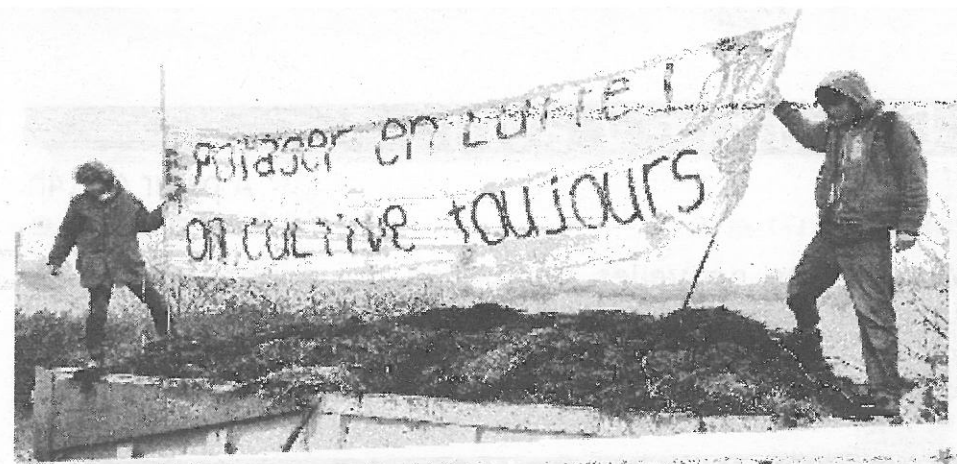 Potager en lutte !
on cultive toujours